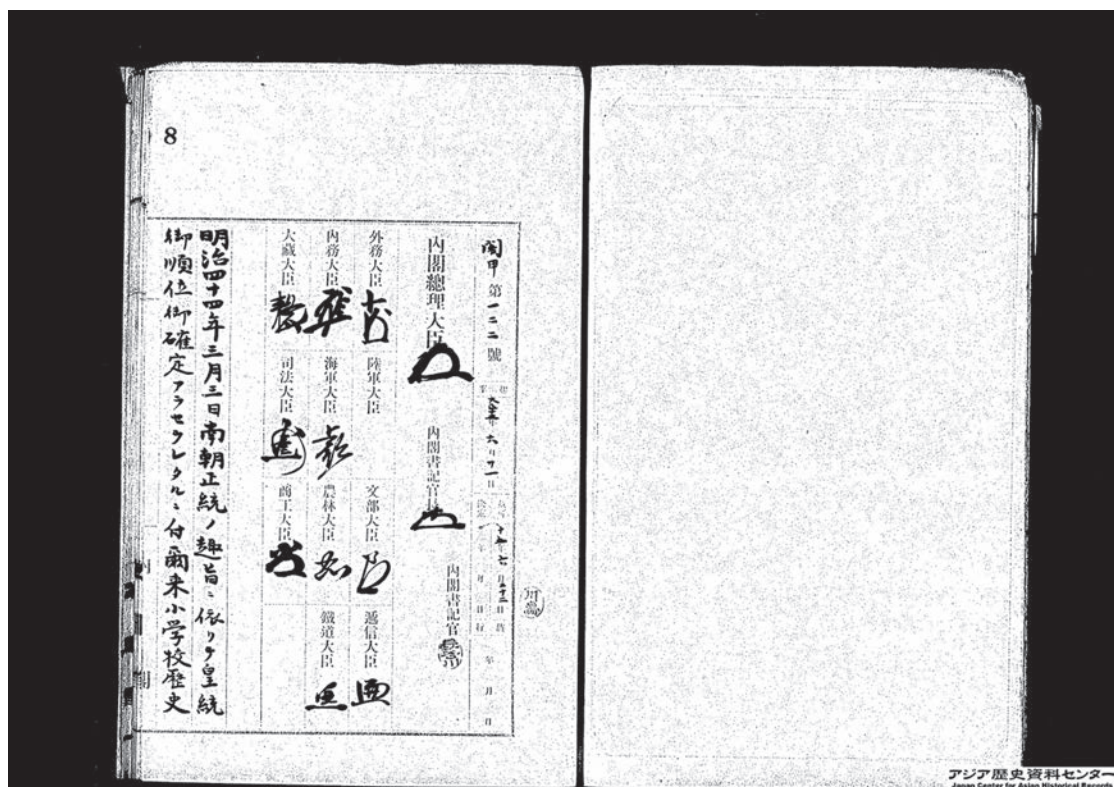 8
閣甲第一二二號
内閣總理大臣
内閣書記官長
内閣書記官
外務大臣
陸軍大臣
文部大臣
遞信大臣
内務大臣
海軍大臣
農林大臣
鐵道大臣
大藏大臣
司法大臣
商工大臣
明治四十四年三月三日南朝正統ノ趣旨ニ依リテ皇統
御順位御確定アラセラレタルニ付爾来小学校歴史
内閣
アジア歴史資料センター
Japan Center for Asian Historical Records